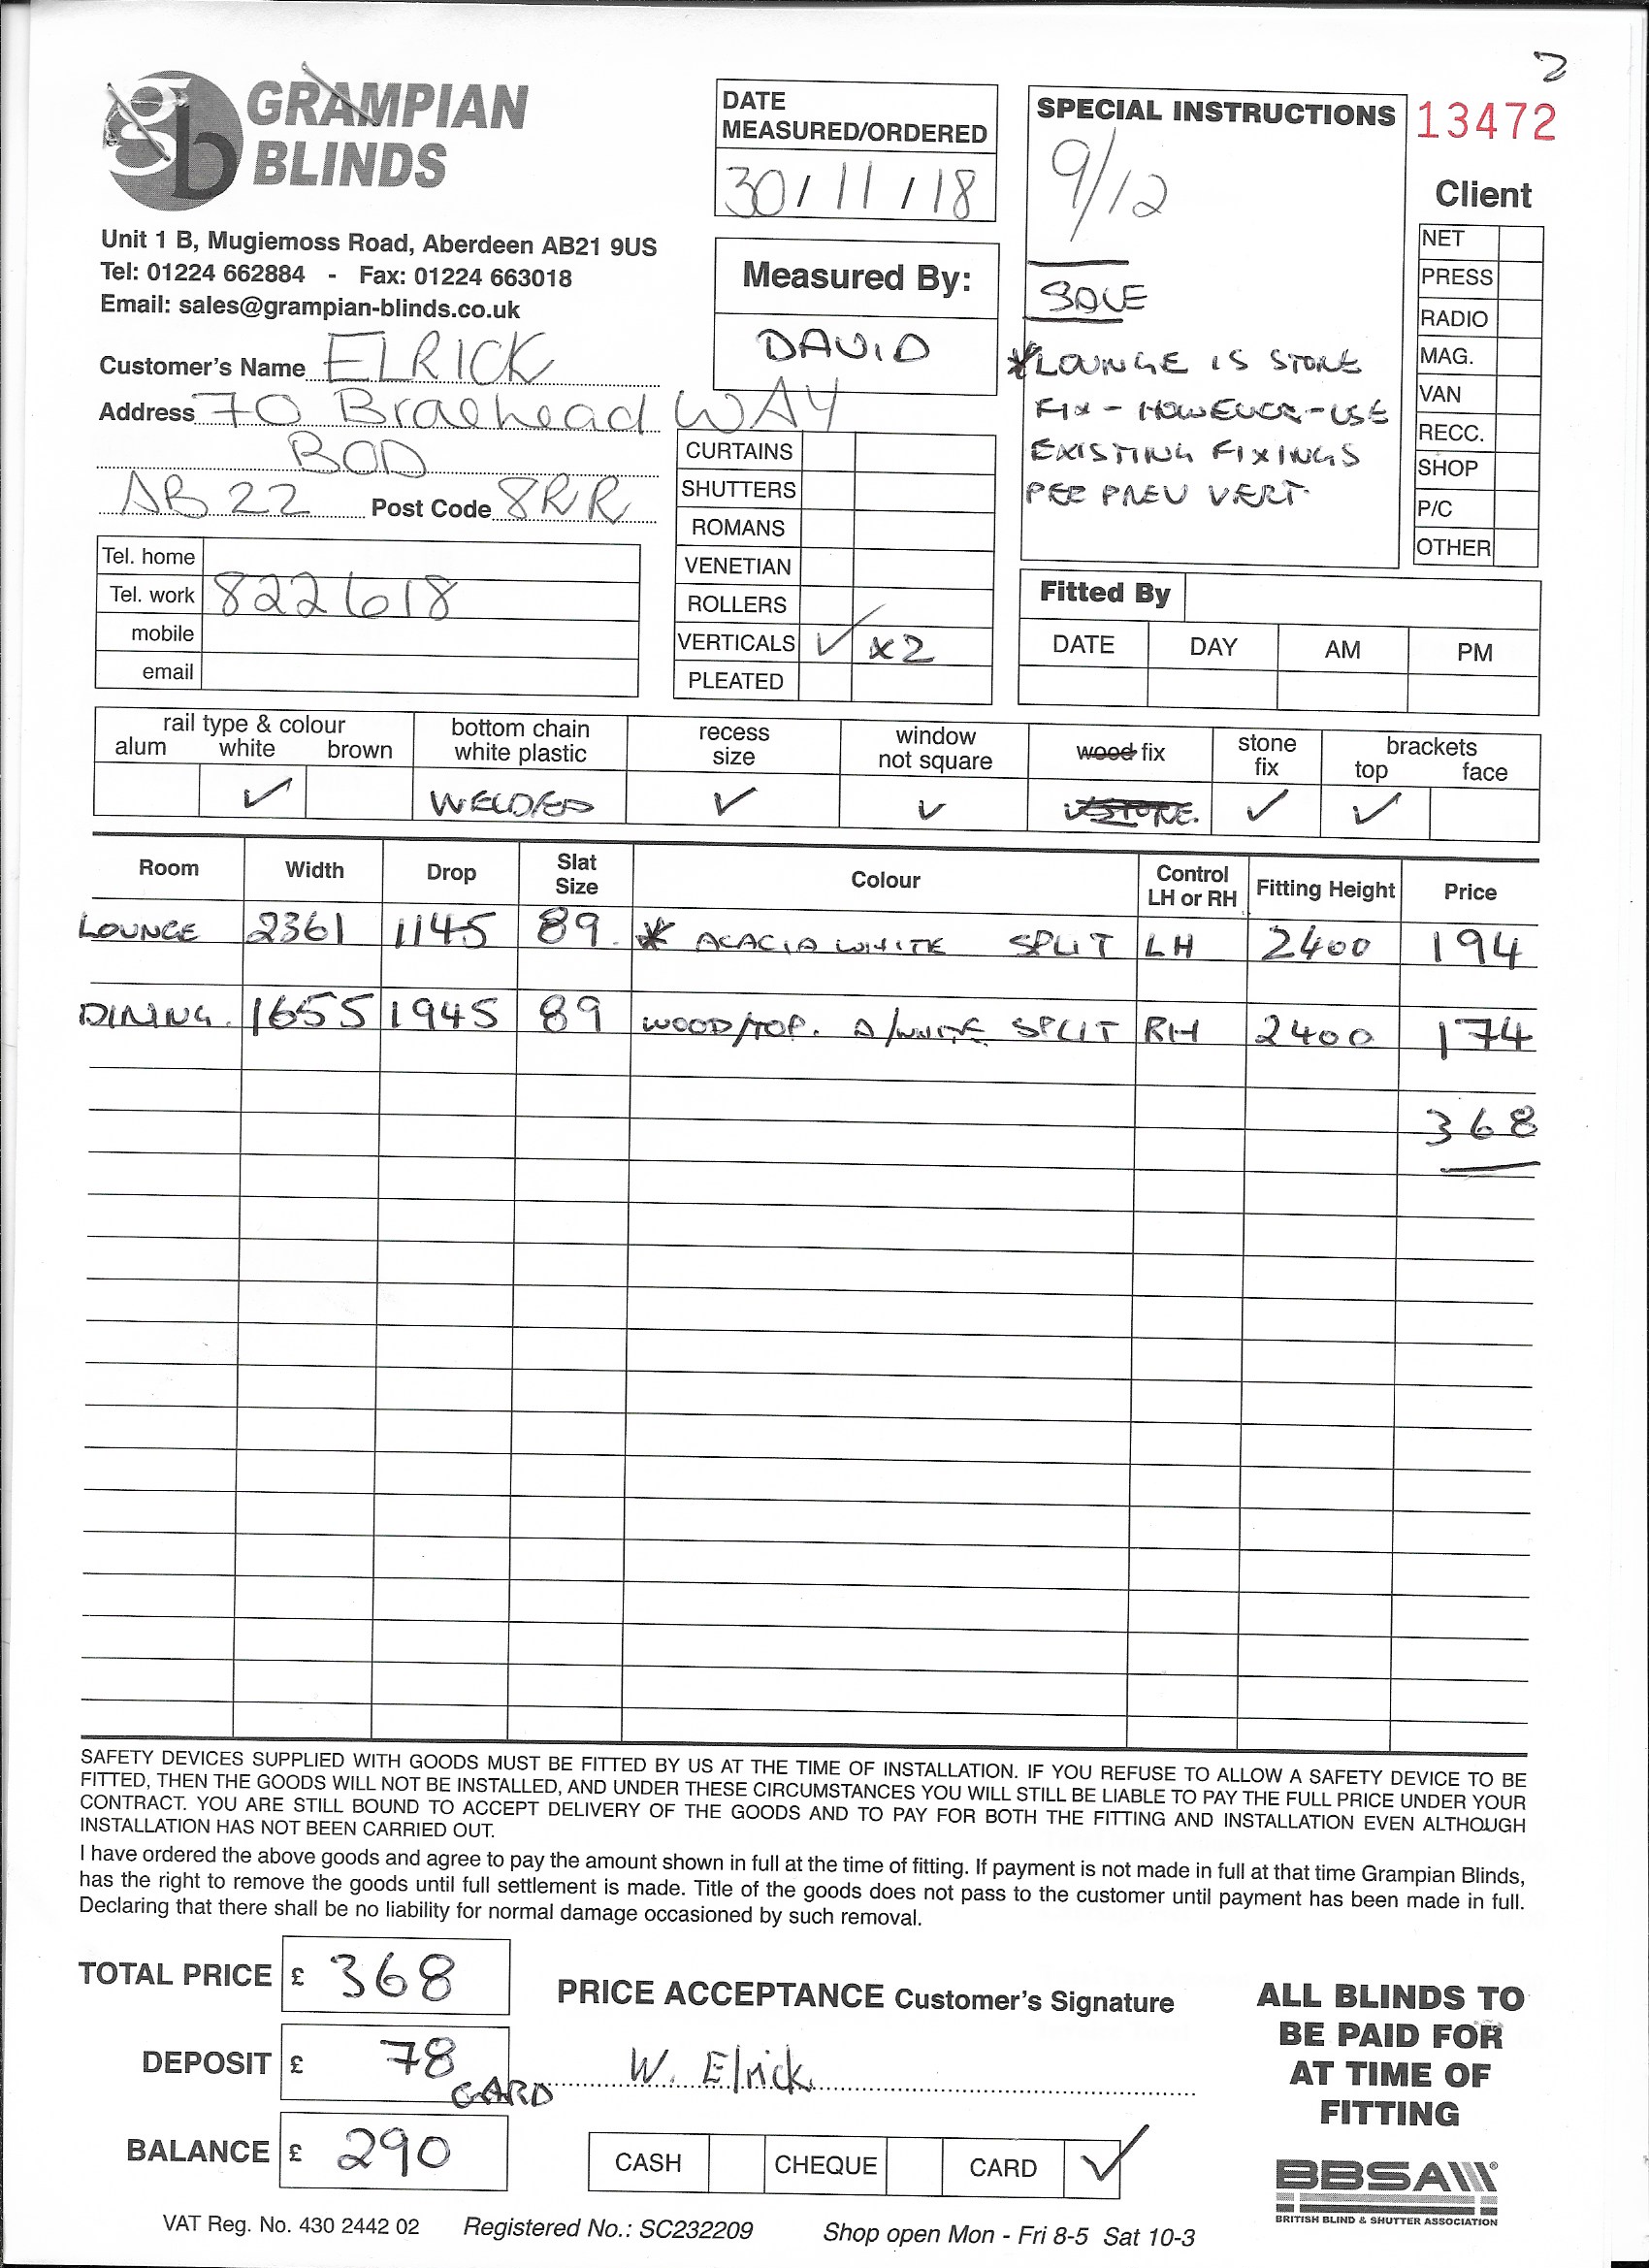 2
GRAMPIAN
BLINDS
gb
Unit 1 B, Mugiemoss Road, Aberdeen AB21 9US
Tel: 01224 662884 - Fax: 01224 663018
Email: sales@grampian-blinds.co.uk
Customer's Name ELRICK
Address 70 Braehead WAY
BOD
AB22 Post Code 8RR
Tel. home
Tel. work 822618
mobile
email
DATE
MEASURED/ORDERED
30/11/18
Measured By:
DAVID
CURTAINS
SHUTTERS
ROMANS
VENETIAN
ROLLERS
VERTICALS ✓ x2
PLEATED
SPECIAL INSTRUCTIONS
9/12
SALE
*LOUNGE IS STONE
FIX - HOWEVER - USE
EXISTING FIXINGS
PER PREV VERT.
13472
Client
NET
PRESS
RADIO
MAG.
VAN
RECC.
SHOP
P/C
OTHER
Fitted By
DATE DAY AM PM
rail type & colour bottom chain recess window wood fix stone brackets
alum white brown white plastic size not square fix top face
✓ WELDED ✓ ✓ ✓ STONE. ✓ ✓
Room Width Drop Slat Size Colour Control LH or RH Fitting Height Price
LOUNGE 2361 1145 89 * ACACIA WHITE SPLIT LH 2400 194
DINING. 1655 1945 89 WOOD/TOP. A/WHITE SPLIT RH 2400 174
368
SAFETY DEVICES SUPPLIED WITH GOODS MUST BE FITTED BY US AT THE TIME OF INSTALLATION. IF YOU REFUSE TO ALLOW A SAFETY DEVICE TO BE
FITTED, THEN THE GOODS WILL NOT BE INSTALLED, AND UNDER THESE CIRCUMSTANCES YOU WILL STILL BE LIABLE TO PAY THE FULL PRICE UNDER YOUR
CONTRACT. YOU ARE STILL BOUND TO ACCEPT DELIVERY OF THE GOODS AND TO PAY FOR BOTH THE FITTING AND INSTALLATION EVEN ALTHOUGH
INSTALLATION HAS NOT BEEN CARRIED OUT.
I have ordered the above goods and agree to pay the amount shown in full at the time of fitting. If payment is not made in full at that time Grampian Blinds,
has the right to remove the goods until full settlement is made. Title of the goods does not pass to the customer until payment has been made in full.
Declaring that there shall be no liability for normal damage occasioned by such removal.
TOTAL PRICE £ 368
DEPOSIT £ 78 CARD
BALANCE £ 290
PRICE ACCEPTANCE Customer's Signature
W. Elrick
CASH CHEQUE CARD ✓
ALL BLINDS TO
BE PAID FOR
AT TIME OF
FITTING
BBSA
BRITISH BLIND & SHUTTER ASSOCIATION
VAT Reg. No. 430 2442 02 Registered No.: SC232209 Shop open Mon - Fri 8-5 Sat 10-3